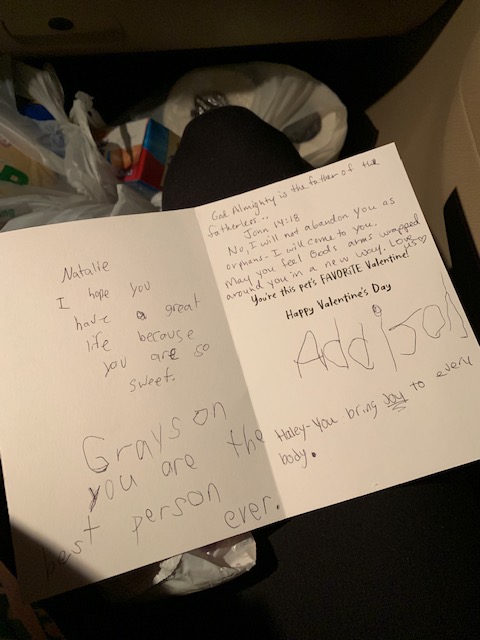 Natalie
I hope you
have a great
life because
you are so
sweet.
Grayson
you are the
best person
ever.
God Almighty is the father of the
fatherless...
John 14:18
No, I will not abandon you as
orphans. I will come to you.
May you feel Gods arms wrapped
around you in a new way. Love
us♡
You're this pet's FAVORITE Valentine!
Happy Valentine's Day
Addison
Haley-You bring Joy to every
body.